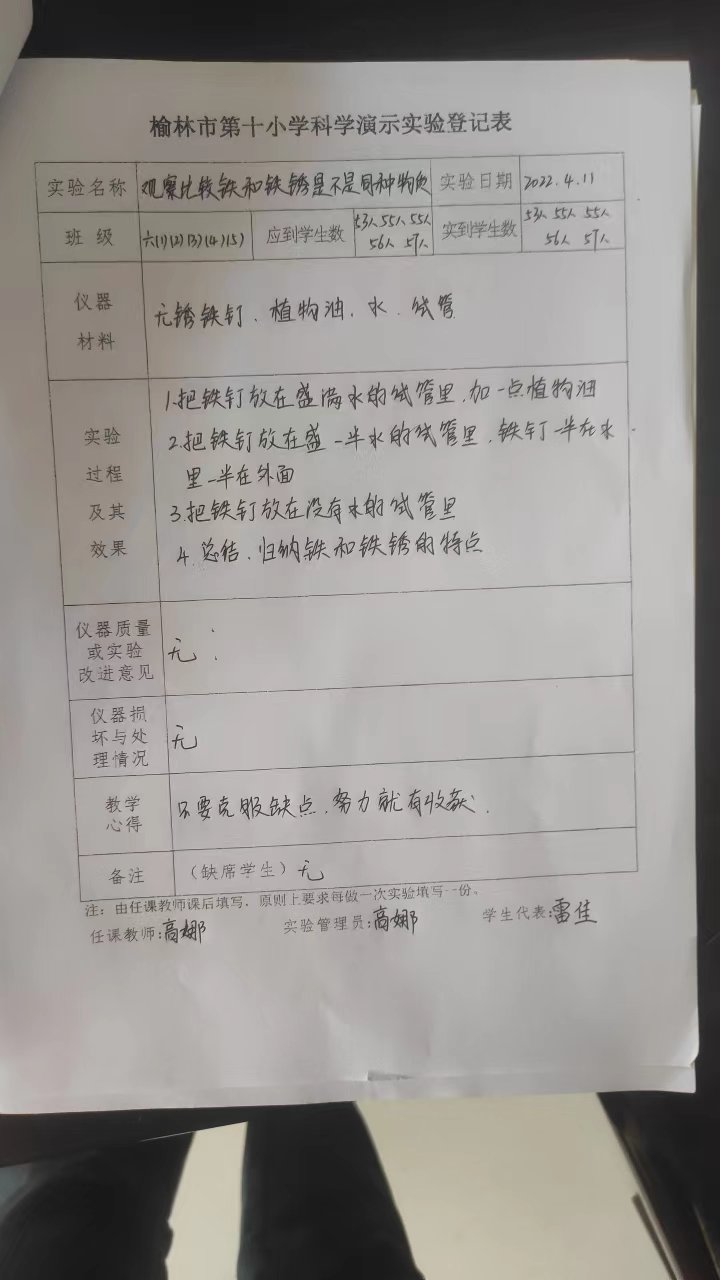 榆林市第十小学科学演示实验登记表
实验名称 观察比较铁和铁锈是不是同种物质 实验日期 2022.4.11
班 级 六(1)(2)(3)(4)(5) 应到学生数 53人 55人 55人 56人 57人 实到学生数 53人 55人 55人 56人 57人
仪器
材料
无锈铁钉、植物油、水、试管
实验
过程
及其
效果
1.把铁钉放在盛满水的试管里,加一点植物油
2.把铁钉放在盛一半水的试管里,铁钉一半在水
里一半在外面
3.把铁钉放在没有水的试管里
4.总结、归纳铁和铁锈的特点
仪器质量
或实验
改进意见
无
仪器损
坏与处
理情况
无
教学
心得
只要克服缺点,努力就有收获.
备注 (缺席学生)无
注:由任课教师课后填写,原则上要求每做一次实验填写一份。
任课教师:高娜 实验管理员:高娜 学生代表:雷佳